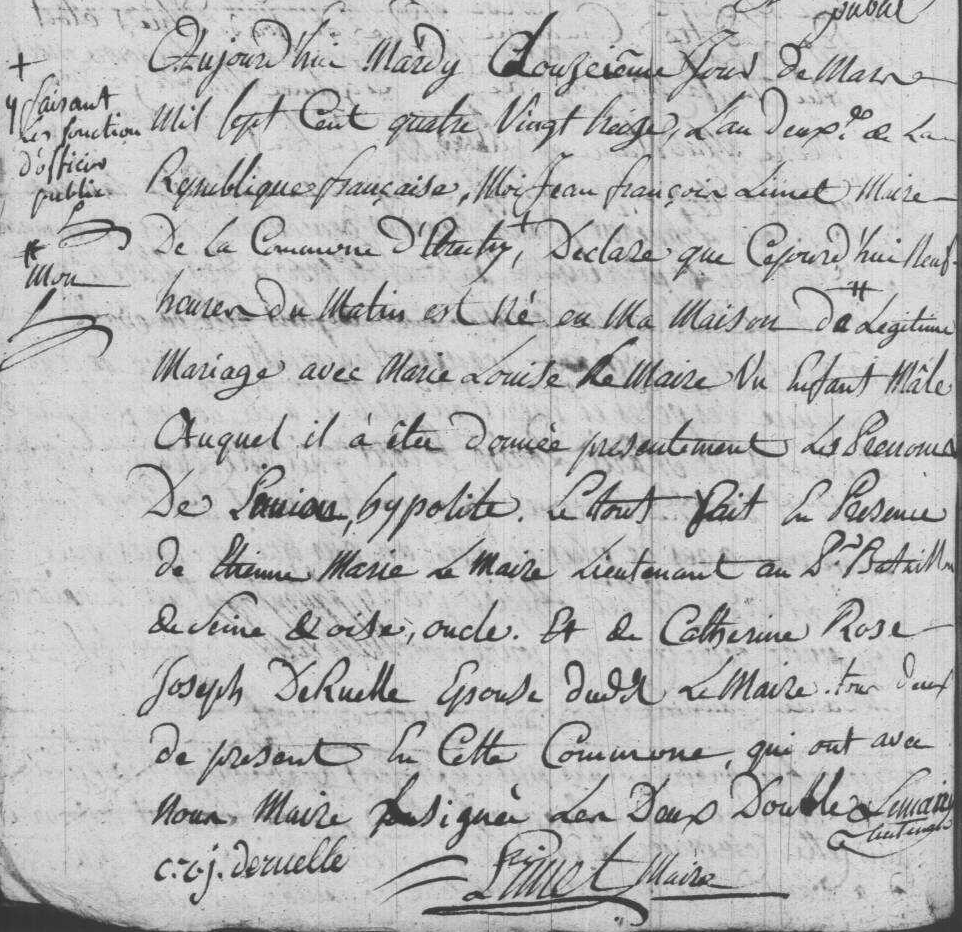 public
Aujourd'hui Mardy Douzieême Jour de Mars
Mil sept Cent quatre Vingt treize, L'an deux.e de La
Republique française, Moi Jean françois Limet Maire
De La Commune d' +, Declare que Cejourd'hui Neuf
heures du Matin est Né en Ma Maison de # Legitime
Mariage avec Marie Louise Le Maire Un Enfant Mâle
Auquel il à êtée donnée presentement Les Prenoms
De hypolite. Le tout fait En Presence
de Etienne Marie Le Maire Lieutenant au Bataillon
de Seine & oise, oncle. Et de Catherine Rose
Joseph DeRuelle Epouse dudt Le Maire. tous deux
de present En Cette Commune, qui ont avec
Nous Maire signée Les Deux Doubles Lemaire
lieutenant
c. r. j. deruelle
Limet Maire
+
faisant
les fonction
d'officier
publix
#
Mon